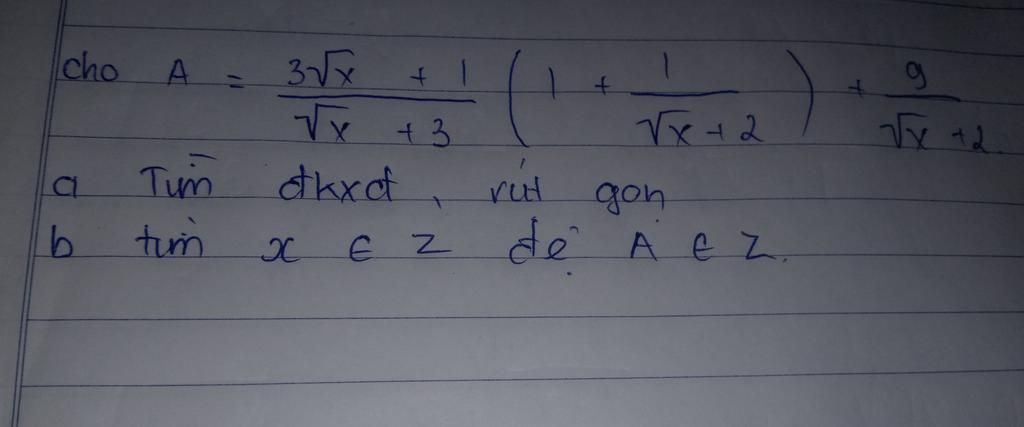 cho A = \frac{3\sqrt{x} + 1}{\sqrt{x} + 3} ( 1 + \frac{1}{\sqrt{x} + 2} ) + \frac{9}{\sqrt{x} + 2}
a Tìm đkxđ, rút gọn
b tìm x ∈ Z để A ∈ Z.